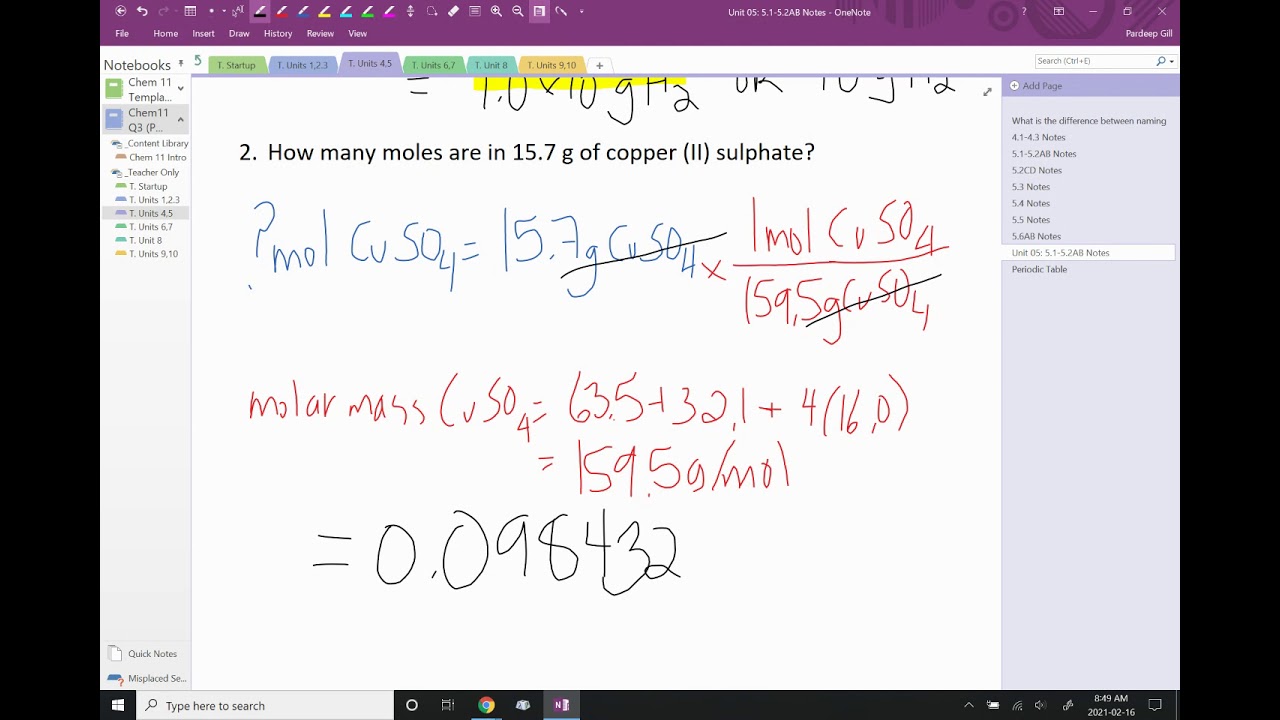 Unit 05: 5.1-5.2AB Notes - OneNote
?
File Home Insert Draw History Review View
Pardeep Gill
Notebooks
T. Startup T. Units 1,2,3 T. Units 4,5 T. Units 6,7 T. Unit 8 T. Units 9,10 +
Search (Ctrl+E)
Chem 11
Templa...
Chem11
Q3 (P...
_Content Library
Chem 11 Intro
_Teacher Only
T. Startup
T. Units 1,2,3
T. Units 4,5
T. Units 6,7
T. Unit 8
T. Units 9,10
Quick Notes
Misplaced Se...
= 1.0×10 g H2 or 10 g H2
2. How many moles are in 15.7 g of copper (II) sulphate?
? mol CuSO4 = 15.7g CuSO4 × 1 mol CuSO4
159.5g CuSO4
molar mass CuSO4 = 63.5 + 32.1 + 4(16.0)
= 159.5g/mol
= 0.098432
Add Page
What is the difference between naming
4.1-4.3 Notes
5.1-5.2AB Notes
5.2CD Notes
5.3 Notes
5.4 Notes
5.5 Notes
5.6AB Notes
Unit 05: 5.1-5.2AB Notes
Periodic Table
Type here to search
8:49 AM
2021-02-16